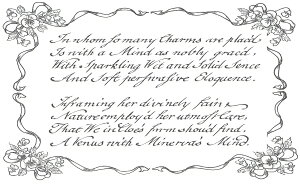 In whom so many Charms are plac'd
Is with a Mind as nobly grac'd.
With Sparkling Wit and Solid Sence
And Soft perswasive Eloquence.
In framing her divinely fair
Nature employ'd her utmost Care,
That We in Cloe's form shou'd find,
A Venus with Minerva's Mind.